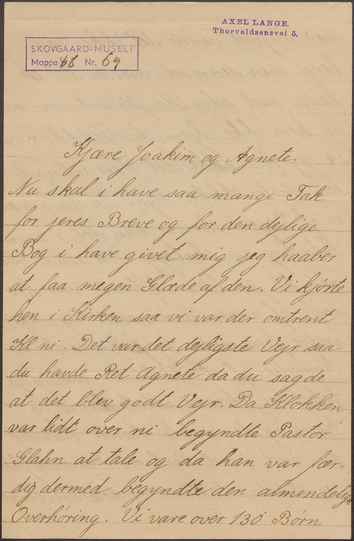 AXEL LANGE.
Thorvaldsensvej 5.
SKOVGAARD-MUSEET
Mappe 68 Nr. 69
Kjære Joakim og Agnete.
Nu skal i have saa mange Tak
for jeres Breve og for den dejlige
Bog i have givet mig jeg haaber
at faa megen Glæde af den. Vi kjørte
hen i Kirken saa vi var der omtrent
Kl ni. Det var det dejligste Vejr saa
du havde Ret Agnete da du sagde
at det blev godt Vejr. Da Klokken
var lidt over ni begyndte Pastor
Glahn at tale og da han var fær-
dig dermed begyndte den almendelige
Overhøring. Vi vare over 130 Børn